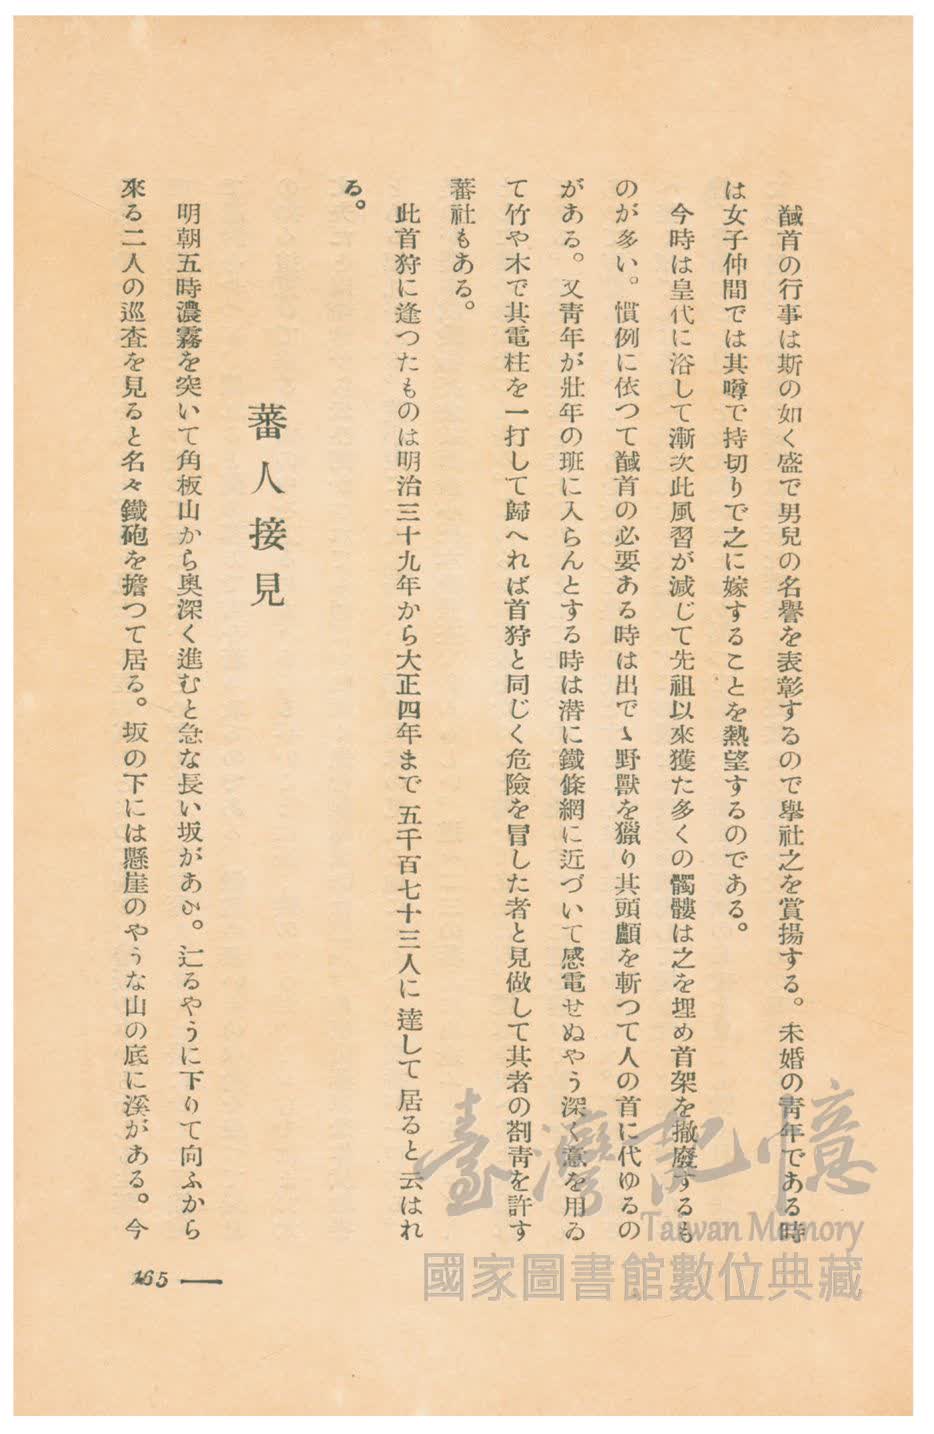 馘首の行事は斯の如く盛で男兒の名譽を表彰するので擧社之を賞揚する。未婚の靑年である時
は女子仲間では其噂で持切りで之に嫁することを熱望するのである。
今時は皇代に浴して漸次此風習が減じて先祖以來獲た多くの髑髏は之を埋め首架を撤廢するも
のが多い。慣例に依つて馘首の必要ある時は出でゝ野獸を獵り其頭顱を斬つて人の首に代ゆるの
がある。又靑年が壯年の班に入らんとする時は潜に鐵條網に近づいて感電せぬやう深く意を用ゐ
て竹や木で其電柱を一打して歸へれば首狩と同じく危險を冒した者と見做して其者の剳靑を許す
蕃社もある。
此首狩に逢つたものは明治三十九年から大正四年まで五千百七十三人に達して居ると云はれ
る。
蕃人接見
明朝五時濃霧を突いて角板山から奥深く進むと急な長い坂があ。辷るやうに下りて向ふから
來る二人の巡査を見ると名々鐵砲を擔つて居る。坂の下には懸崖のやうな山の底に溪がある。今
165
臺灣記憶
Taiwan Memory
國家圖書館數位典藏